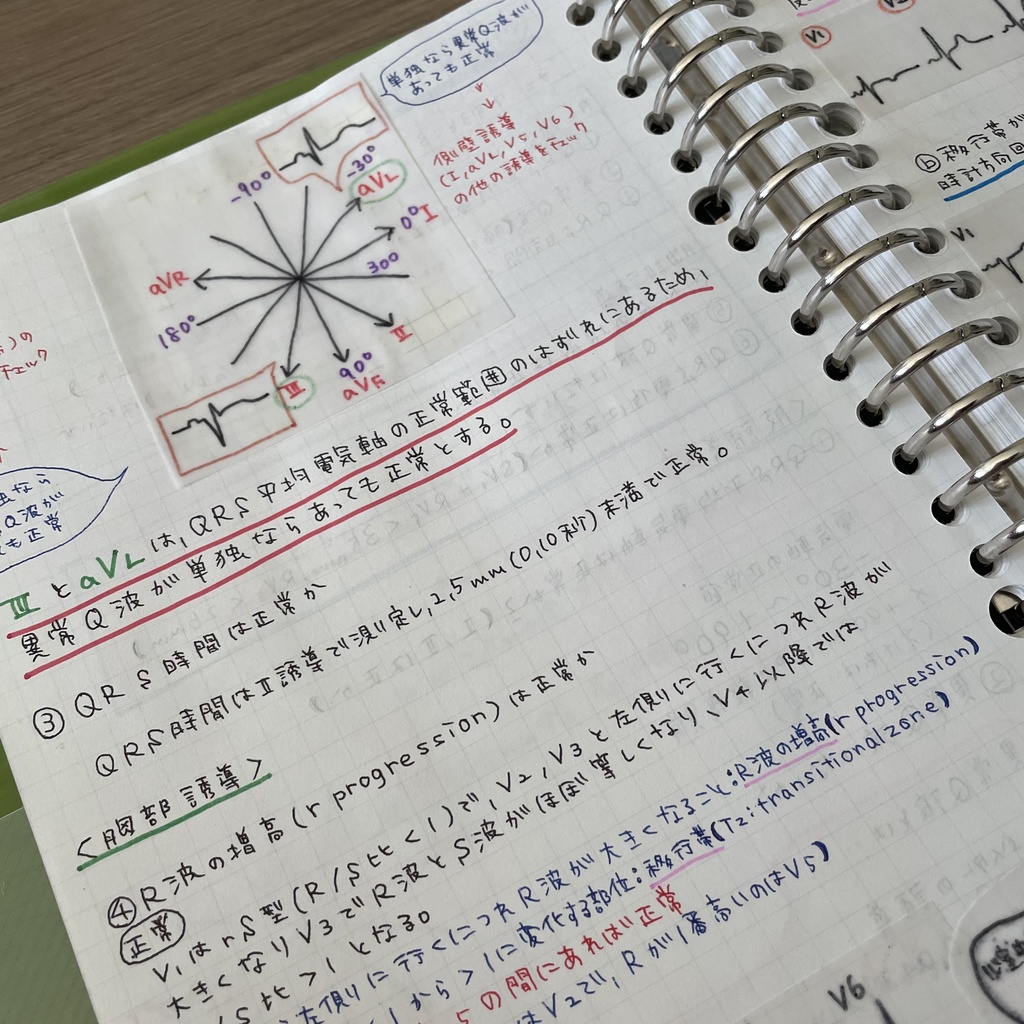 単独なら異常Q波が
あっても正常
側壁誘導
(I, aVL, V5, V6)
の他の誘導をチェック
-90°
-30°
aVL
0° I
300
aVR
180°
II
90°
aVF
III
の
チェック
なら
Q波が
も正常
IIIとaVLは、QRS平均電気軸の正常範囲のはずれにあるため、
異常Q波が単独ならあっても正常とする。
③ QRS時間は正常か
QRS時間はII誘導で測定し、2,5mm(0,10秒)未満で正常。
<胸部誘導>
④ R波の増高(r progression)は正常か
正常
V1はrS型(R/S比<1)で、V2,V3と左側に行くにつれR波が
大きくなりV3でR波とS波がほぼ等しくなり、V4以降では
/S比>1となる。
左側に行くにつれR波が大きくなること:R波の増高(r progression)
1から>1に変化する部位:移行帯(Tz:transitional zone)
5の間にあれば正常
はV2で、Rが1番高いのはV5)
V1
ⓑ移行帯が
時計方向回
V1
V6